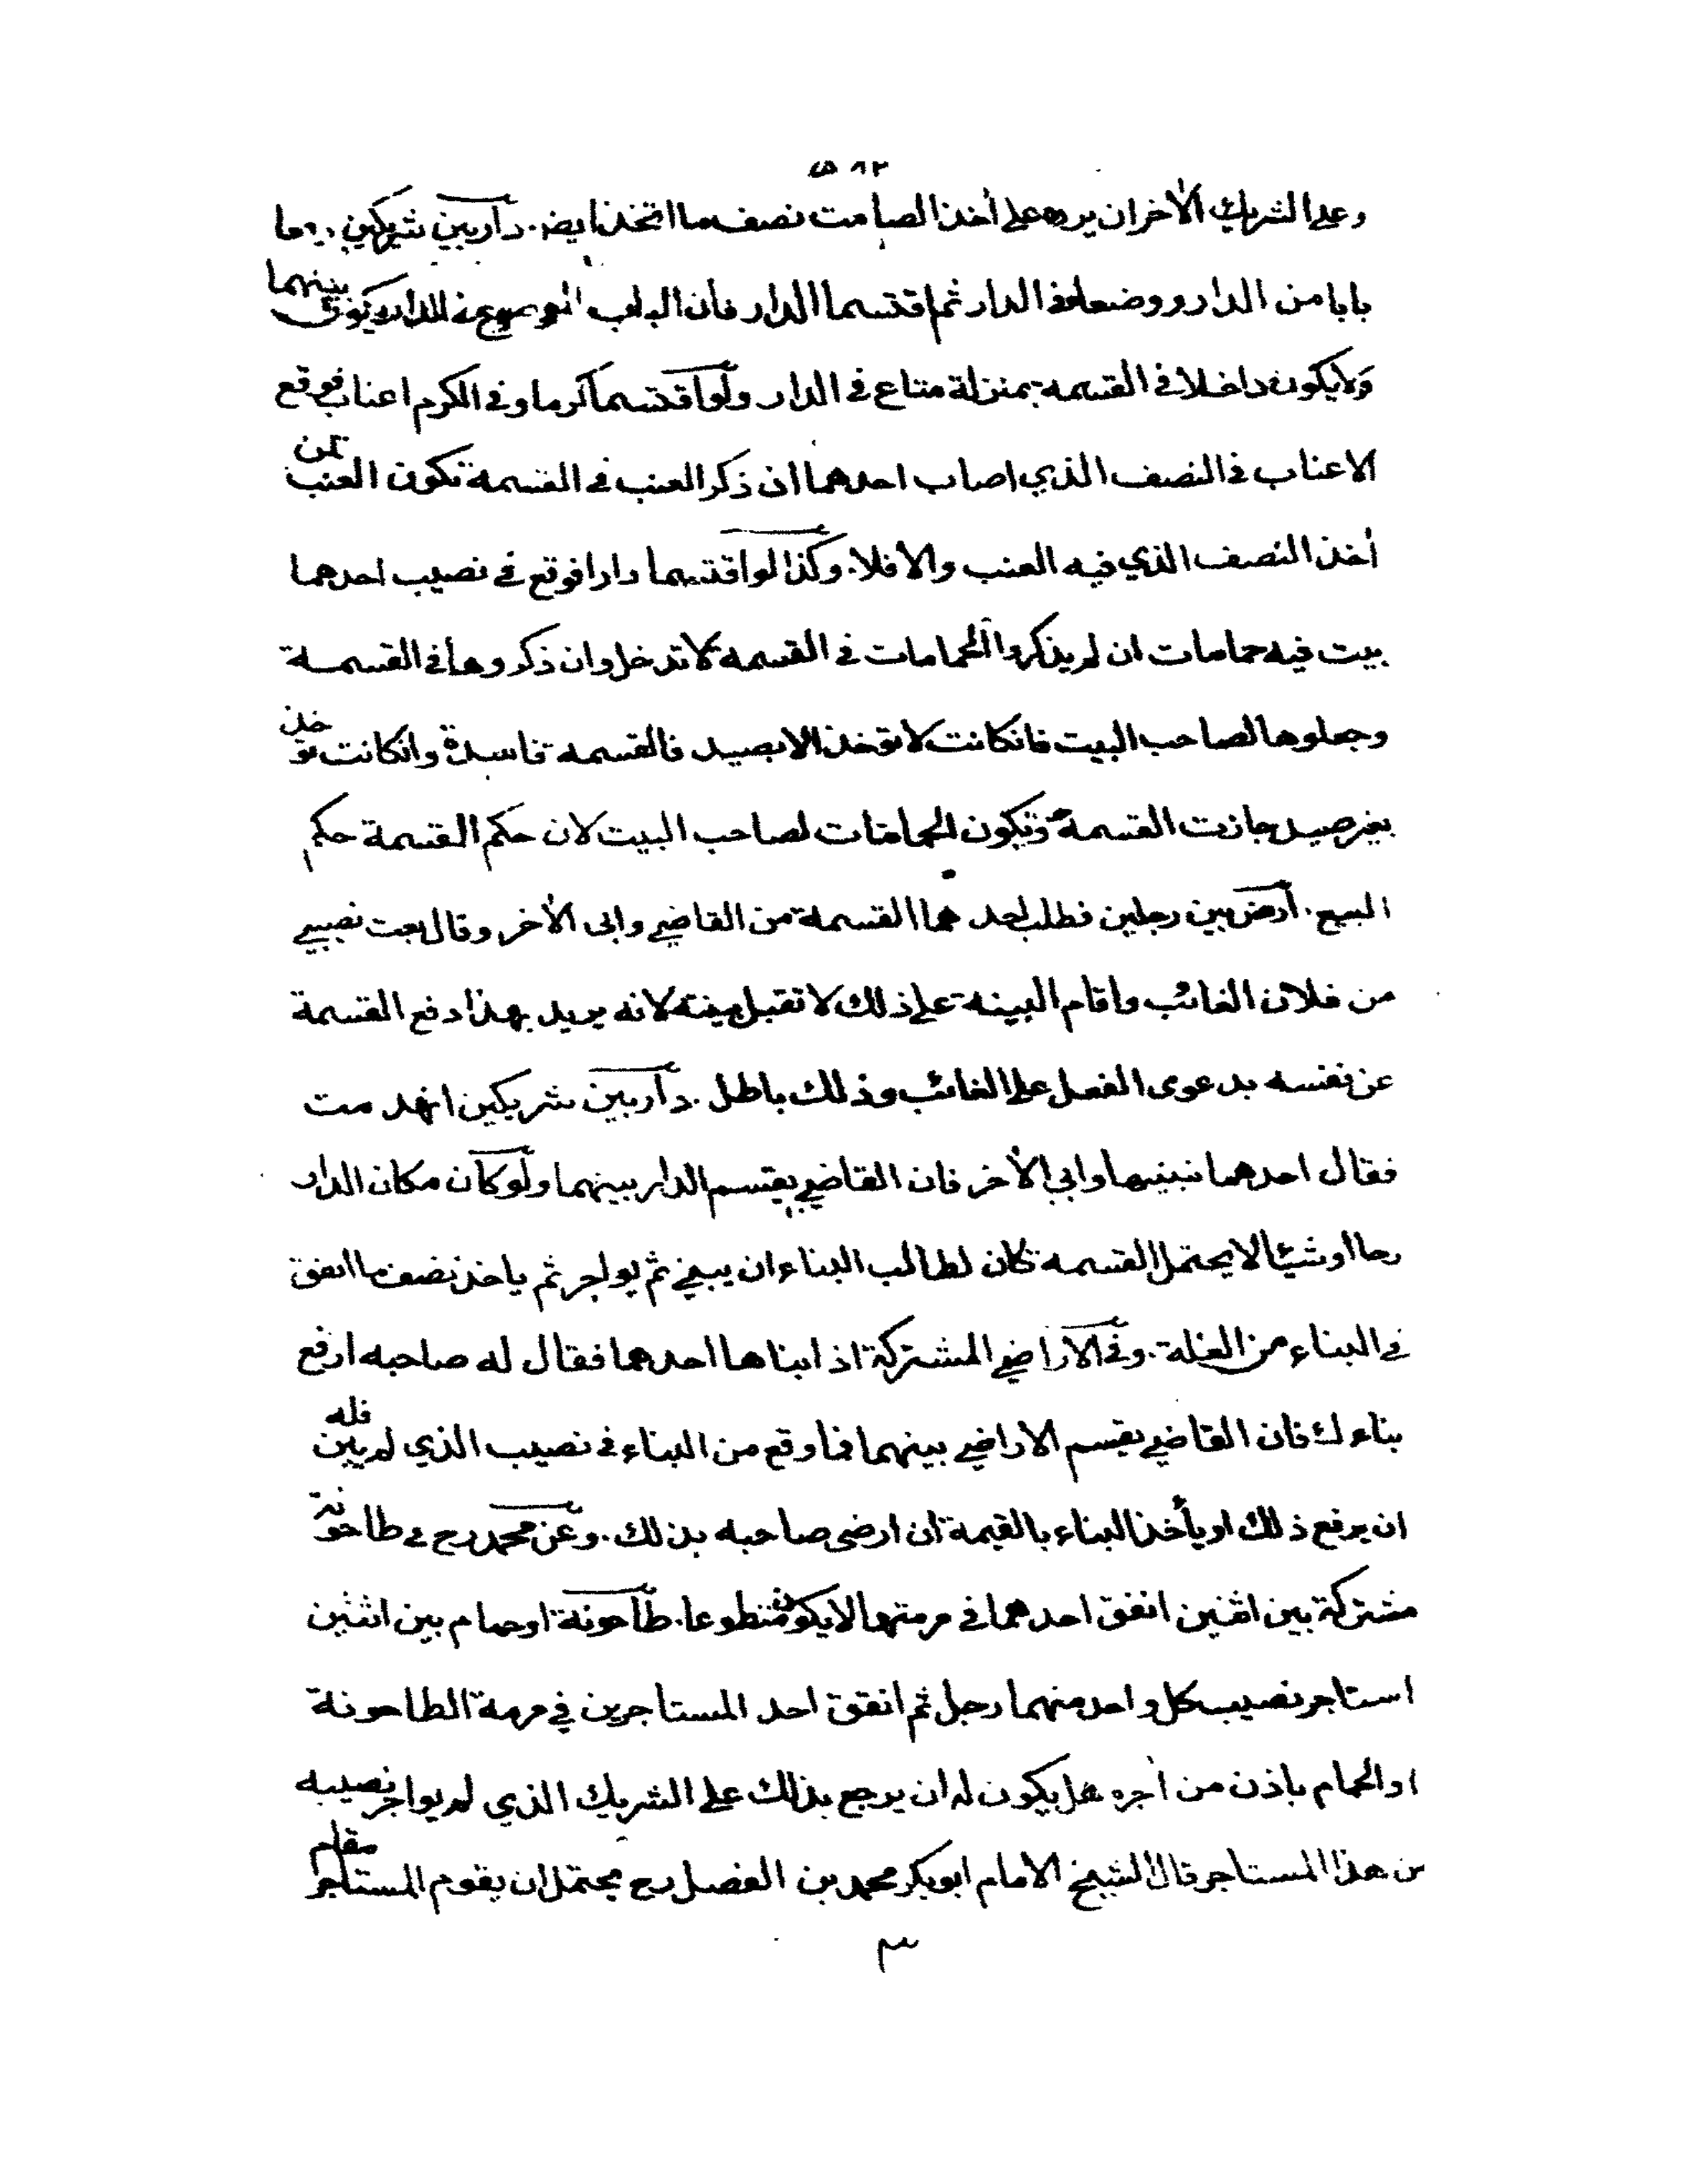 ٥٨٢
وعلى الشريك الأخر ان يرده على أخذ الصامت نصف ما اتخذ ايضا. دار بين شريكين
بابا من الدار ووضعاه في الدار ثم اقتسما الدار فان الباب الموضوع في الدار يكون بينهما
ولا يكون داخلا في القسمة بمنزلة متاع في الدار ولو اقتسما كرما وفي الكرم اعناب فوقع
الاعناب في النصف الذي اصاب احدهما ان ذكر العنب في القسمة تكون العنب لمن
أخذ النصف الذي فيه العنب والا فلا. وكذا لو اقتسما دارا فوقع في نصيب احدهما
بيت فيه حمامات ان لم يذكروا الحمامات في القسمة لا تدخل وان ذكروها في القسمة
وجعلوها لصاحب البيت فان كانت لا تؤخذ الا بصيد فالقسمة فاسدة وان كانت تؤخذ
بغير صيد جازت القسمة وتكون الحمامات لصاحب البيت لان حكم القسمة حكم
البيع. أرض بين رجلين فطلب احدهما القسمة من القاضي وابى الأخر وقال بعت نصيبي
من فلان الغائب واقام البينة على ذلك لا تقبل بينته لانه يريد بهذا دفع القسمة
عن نفسه بدعوى الفعل على الغائب وذلك باطل. دار بين شريكين انهدمت
فقال احدهما نبنيها وابى الأخر فان القاضي يقسم الدار بينهما ولو كان مكان الدار
رحا او شيئا لا يحتمل القسمة كان لطالب البناء ان يبني ثم يواجر ثم ياخذ نصف ما انفق
في البناء من الغلة. وفي الاراضي المشتركة اذا بناها احدهما فقال له صاحبه ارفع
بناءك فان القاضي يقسم الاراضي بينهما فما وقع من البناء في نصيب الذي لم يبن فله
ان يرفع ذلك او يأخذ البناء بالقيمة ان ارضى صاحبه بذلك. وعن محمد رح في طاحونة
مشتركة بين اثنين انفق احدهما في مرمتها لا يكون متطوعا. طاحونة او حمام بين اثنين
استاجر نصيب كل واحد منهما رجل ثم انفق احد المستاجرين في مرمة الطاحونة
او الحمام باذن من أجره هل يكون له ان يرجع بذلك على الشريك الذي لم يواجر نصيبه
من هذا المستاجر قال الشيخ الامام ابو بكر محمد بن الفضل رح يحتمل ان يقوم المستاجر مقام
٣